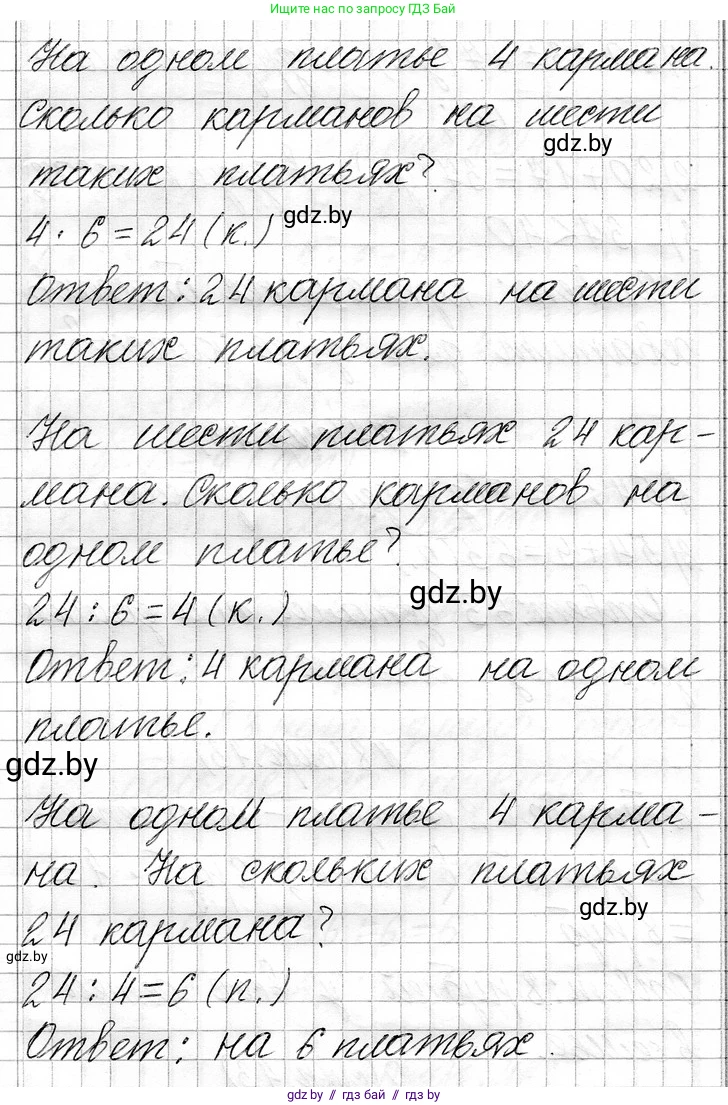 Ищите нас по запросу ГДЗ Бай
На одном платье 4 кармана.
Сколько карманов на шести
gdz.by
таких платьях?
gdz.by
4 · 6 = 24 (к.)
Ответ: 24 кармана на шести
таких платьях.
На шести платьях 24 кар-
мана. Сколько карманов на
одном платье?
gdz.by
24 : 6 = 4 (к.)
Ответ: 4 кармана на одном
платье.
gdz.by
На одном платье 4 карма-
на. На скольких платьях
gdz.by
24 кармана?
gdz.by
24 : 4 = 6 (п.)
Ответ: на 6 платьях.
gdz.by // гдз бай // gdz.by